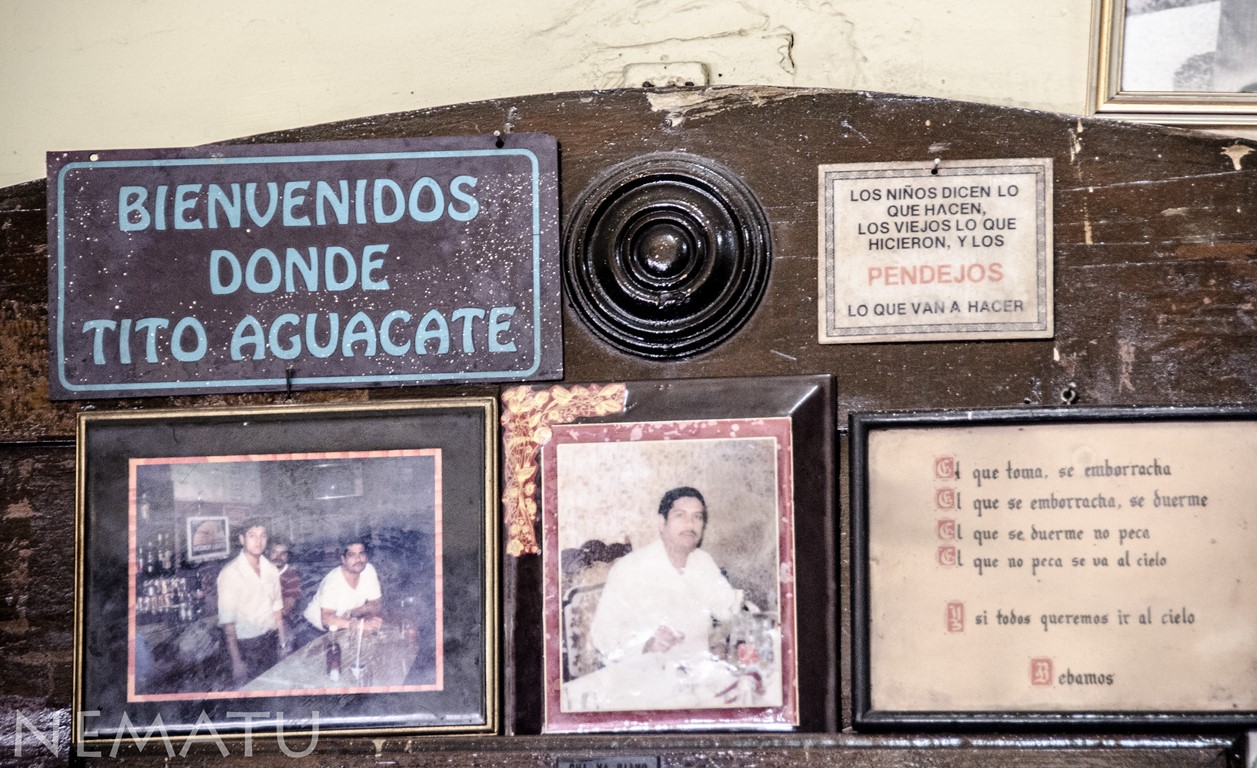 BIENVENIDOS
DONDE
TITO AGUACATE
LOS NIÑOS DICEN LO
QUE HACEN,
LOS VIEJOS LO QUE
HICIERON, Y LOS
PENDEJOS
LO QUE VAN A HACER
El que toma, se emborracha
El que se emborracha, se duerme
El que se duerme no peca
El que no peca se va al cielo
Y si todos queremos ir al cielo
Bebamos
NEMATU